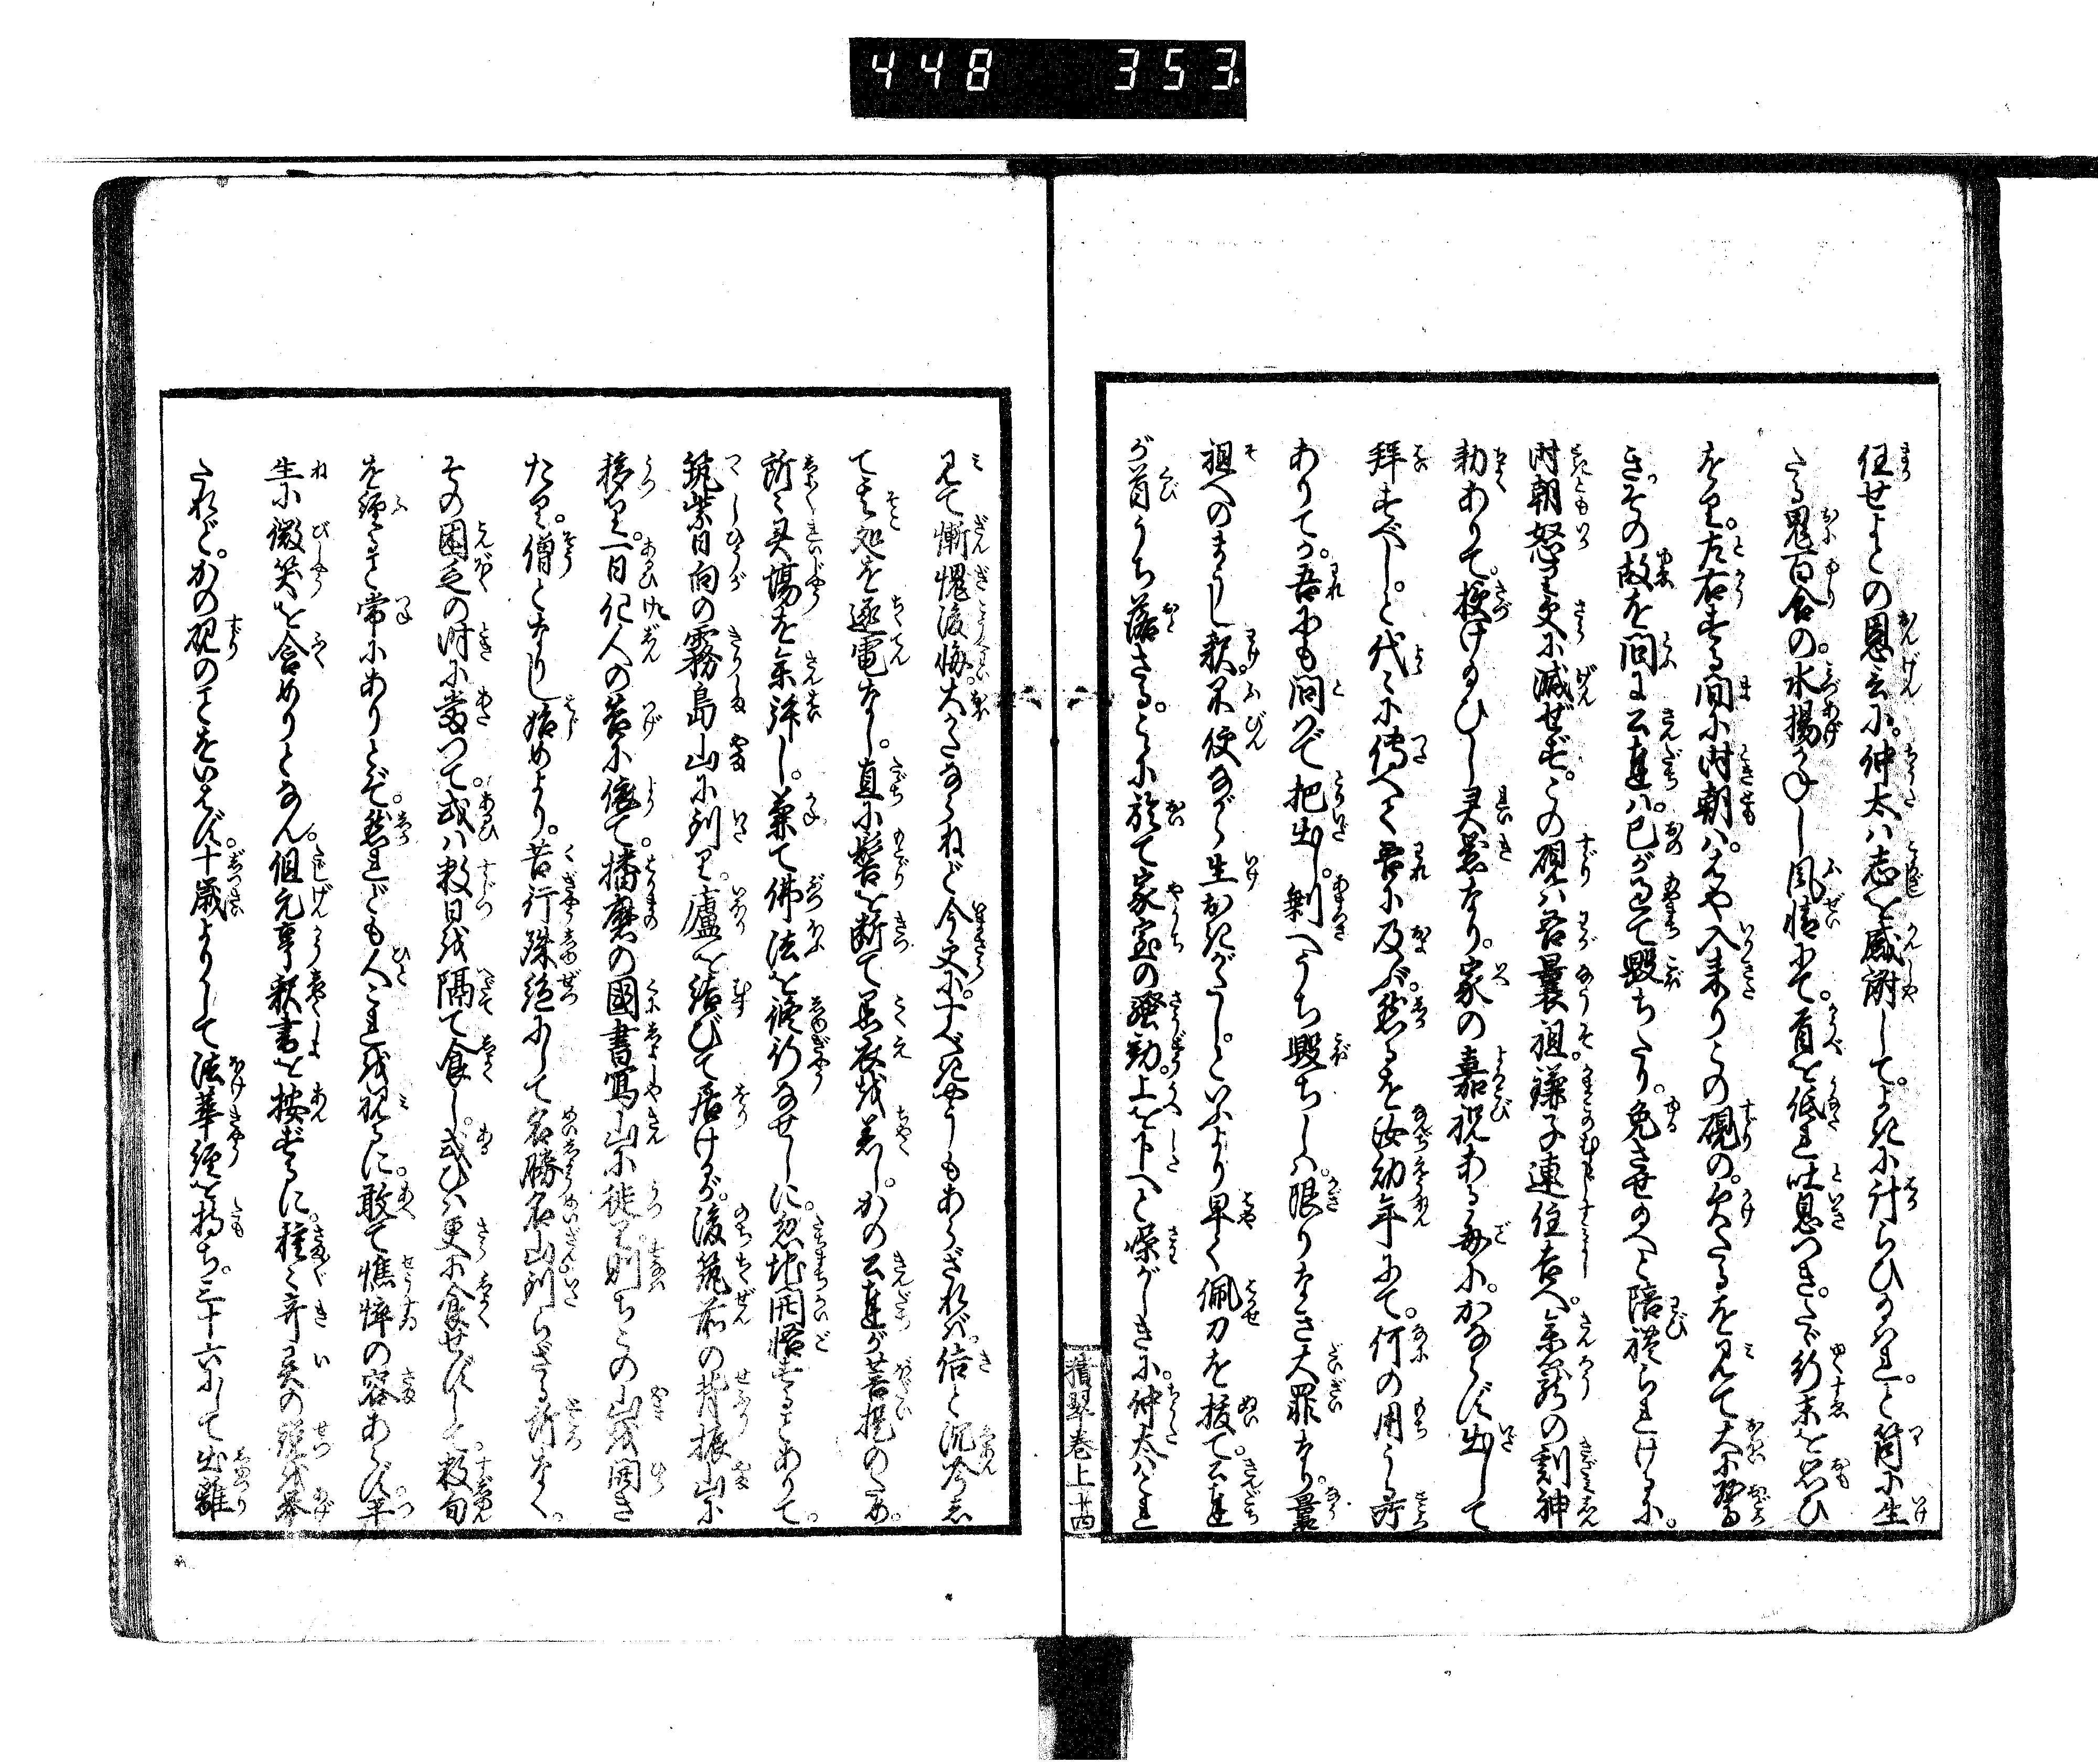 448 353
任せよとの恩言に。仲太は志を感謝して。よきに計らひ給はれ。と筒に生
たる鬼百合の。水揚かねし風情にて。首を低れ吐息つき。たゞ行末を思ひ
をり。左右する間に時朝は。はや入来りこの硯の。欠たるを見て大に驚
き。その故を問に公達は。己が過て毀ちたり。免させ給へと陪禮られけるに。
時朝怒り更に減ぜず。この硯は吾曩祖。鎌子連住吉へ。参籠の刻神
勅ありて。授け給ひし灵器なり。家の嘉祝ある毎に。かならず出して
拝すべし。と代々に傳へて吾に及ぶ。然るを汝幼年にて。何の用うる所
ありてか。吾にも問はで把出し。剰へうち毀ちしは。限りなき大罪なり。曩
祖へのまうし釈。不便ながら生おきがたし。といふより早く佩刀を抜て。公達
が首うち落さる。こゝに於て家室の騒動。上を下へと噪がしきに。仲太はこれ
指翠巻上 十四
見て慚愧後悔。大かたならねど今更に。すべきやうもあらざれば。信と沈吟し
て其処を逐電なし。直に髻を断て墨衣を着し。かの公達が菩提のため。
所々灵場を参詣し。兼て佛法を修行なせしに。忽地開悟することありて。
筑紫日向の霧島山に到り。廬を結びて居けるが。後筑前の背振山に
移り。一日化人の告に依て。播磨の國書寫山に徙り。則ちこの山を開き
たり。僧となりし始めより。苦行殊絶にして名勝名山到らざる所なく。
その困乏の時に當つて。或は数日を隔て食し。或ひは更に食せずして。数旬
を經ること常にありとぞ。然れども人これを視るに。敢て憔悴の容あらず。平
生に微笑を含めりとなん。但元亨釈書を按ずるに。種々奇灵の説を挙
たれど。かの硯のことをいはず。十歳よりして法華經を持ち。三十六にして出離